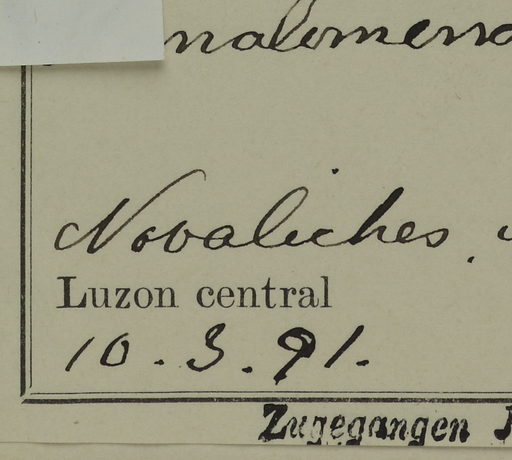 nalomena
Novaliches.
Luzon central
10.3.91.
Zugegangen